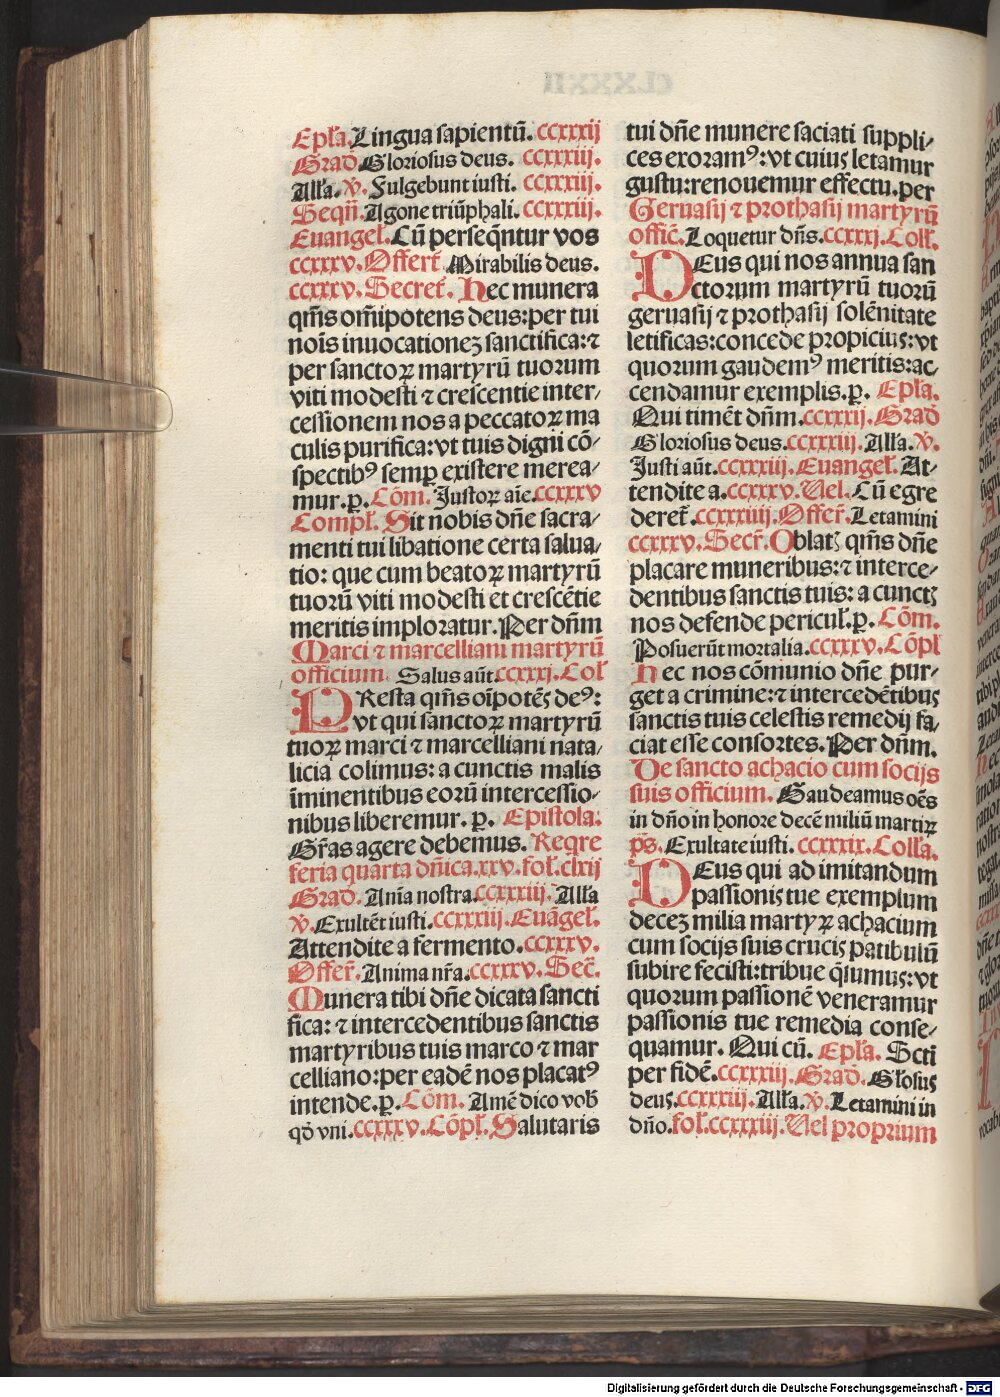 Epl̄a. Lingua sapientū. ccxxxij
Grad̄. Gloriosus deus. ccxxxiij.
Alla. v̄. Fulgebunt iusti. ccxxxiij.
Seqn̄. Agone triūphali. ccxxxiij.
Euangel̄. Cū perseq̄ntur vos
ccxxxv. Offert̄. Mirabilis deus.
ccxxxv. Secret̄. Hec munera
qm̄s om̄ipotens deus: per tui
noīs inuocationeȝ sanctifica: ⁊
per sanctoꝝ martyrū tuorum
viti modesti ⁊ crescentie inter⸗
cessionem nos a peccatoꝝ ma
culis purifica: vt tuis digni cō⸗
spectibꝰ semꝑ existere merea⸗
mur. ꝑ. Cōm. Justoꝝ aīe. ccxxxv
Compl̄. Sit nobis dn̄e sacra⸗
menti tui libatione certa salua⸗
tio: que cum beatoꝝ martyrū
tuorū viti modesti et crescētie
meritis imploratur. Per dn̄m
Marci ⁊ marcelliani martyrū
officium. Salus aūt. ccxxxj. Col̄
PResta qm̄s oīpotēs deꝰ:
vt qui sanctoꝝ martyrū
tuoꝝ marci ⁊ marcelliani nata⸗
licia colimus: a cunctis malis
īminentibus eorū intercessio⸗
nibus liberemur. ꝑ. Epistola:
Gr̄as agere debemus. Reqre
feria quarta dn̄ica. xxv. fol̄. clxij
Grad̄. Anīa nostra. ccxxxiij. Alla
v̄. Exultēt iusti. ccxxxiij. Euāgel̄.
Attendite a fermento. ccxxxv.
Offer̄. Anima nr̄a. ccxxxv. Sec̄.
Munera tibi dn̄e dicata sancti
fica: ⁊ intercedentibus sanctis
martyribus tuis marco ⁊ mar
celliano: per eadē nos placatꝰ
intende. ꝑ. Cōm. Amē dico vob̄
qd̄ vni. ccxxxv. Cōpl̄. Salutaris
tui dn̄e munere saciati suppli⸗
ces exoramꝰ: vt cuiuꝫ letamur
gustu: renouemur effectu. per
Geruasij ⁊ prothasij martyrū
offic̄. Loquetur dn̄s. ccxxxj. Coll̄.
DEus qui nos annua san
ctorum martyrū tuorū
geruasij ⁊ prothasij solēnitate
letificas: concede propicius: vt
quorum gaudemꝰ meritis: ac⸗
cendamur exemplis. ꝑ. Epl̄a.
Qui timēt dn̄m. ccxxxij. Grad̄
Gloriosus deus. ccxxxiij. Alla. v̄.
Justi aūt. ccxxxiij. Euangel̄. At⸗
tendite a. ccxxxv. Vel. Cū egre
deret̄. ccxxxiiij. Offer̄. Letamini
ccxxxv. Secr̄. Oblatꝫ qm̄s dn̄e
placare muneribus: ⁊ interce⸗
dentibus sanctis tuis: a cunctꝫ
nos defende pericul̄. ꝑ. Cōm.
Posuerūt mortalia. ccxxxv. Cōpl̄
Hec nos cōmunio dn̄e pur⸗
get a crimine: ⁊ intercedētibuꝫ
sanctis tuis celestis remedij fa⸗
ciat esse consortes. Per dn̄m.
De sancto achacio cum socijs
suis officium. Gaudeamus oēs
in dn̄o in honore decē miliū martiꝝ
ps̄. Exultate iusti. ccxxxix. Coll̄a.
DEus qui ad imitandum
passioniꝫ tue exemplum
deceȝ milia martyꝝ achacium
cum socijs suis cruciꝫ patibulū
subire fecisti: tribue q̄sumus: vt
quorum passionē veneramur
passionis tue remedia conse⸗
quamur. Qui cū. Epl̄a. Scti
per fidē. ccxxxiij. Grad̄. Gl̄osus
deus. ccxxxiij. Alla. v̄. Letamini in
dn̄o. fol̄. ccxxxiij. Vel proprium
Digitalisierung gefördert durch die Deutsche Forschungsgemeinschaft - DFG